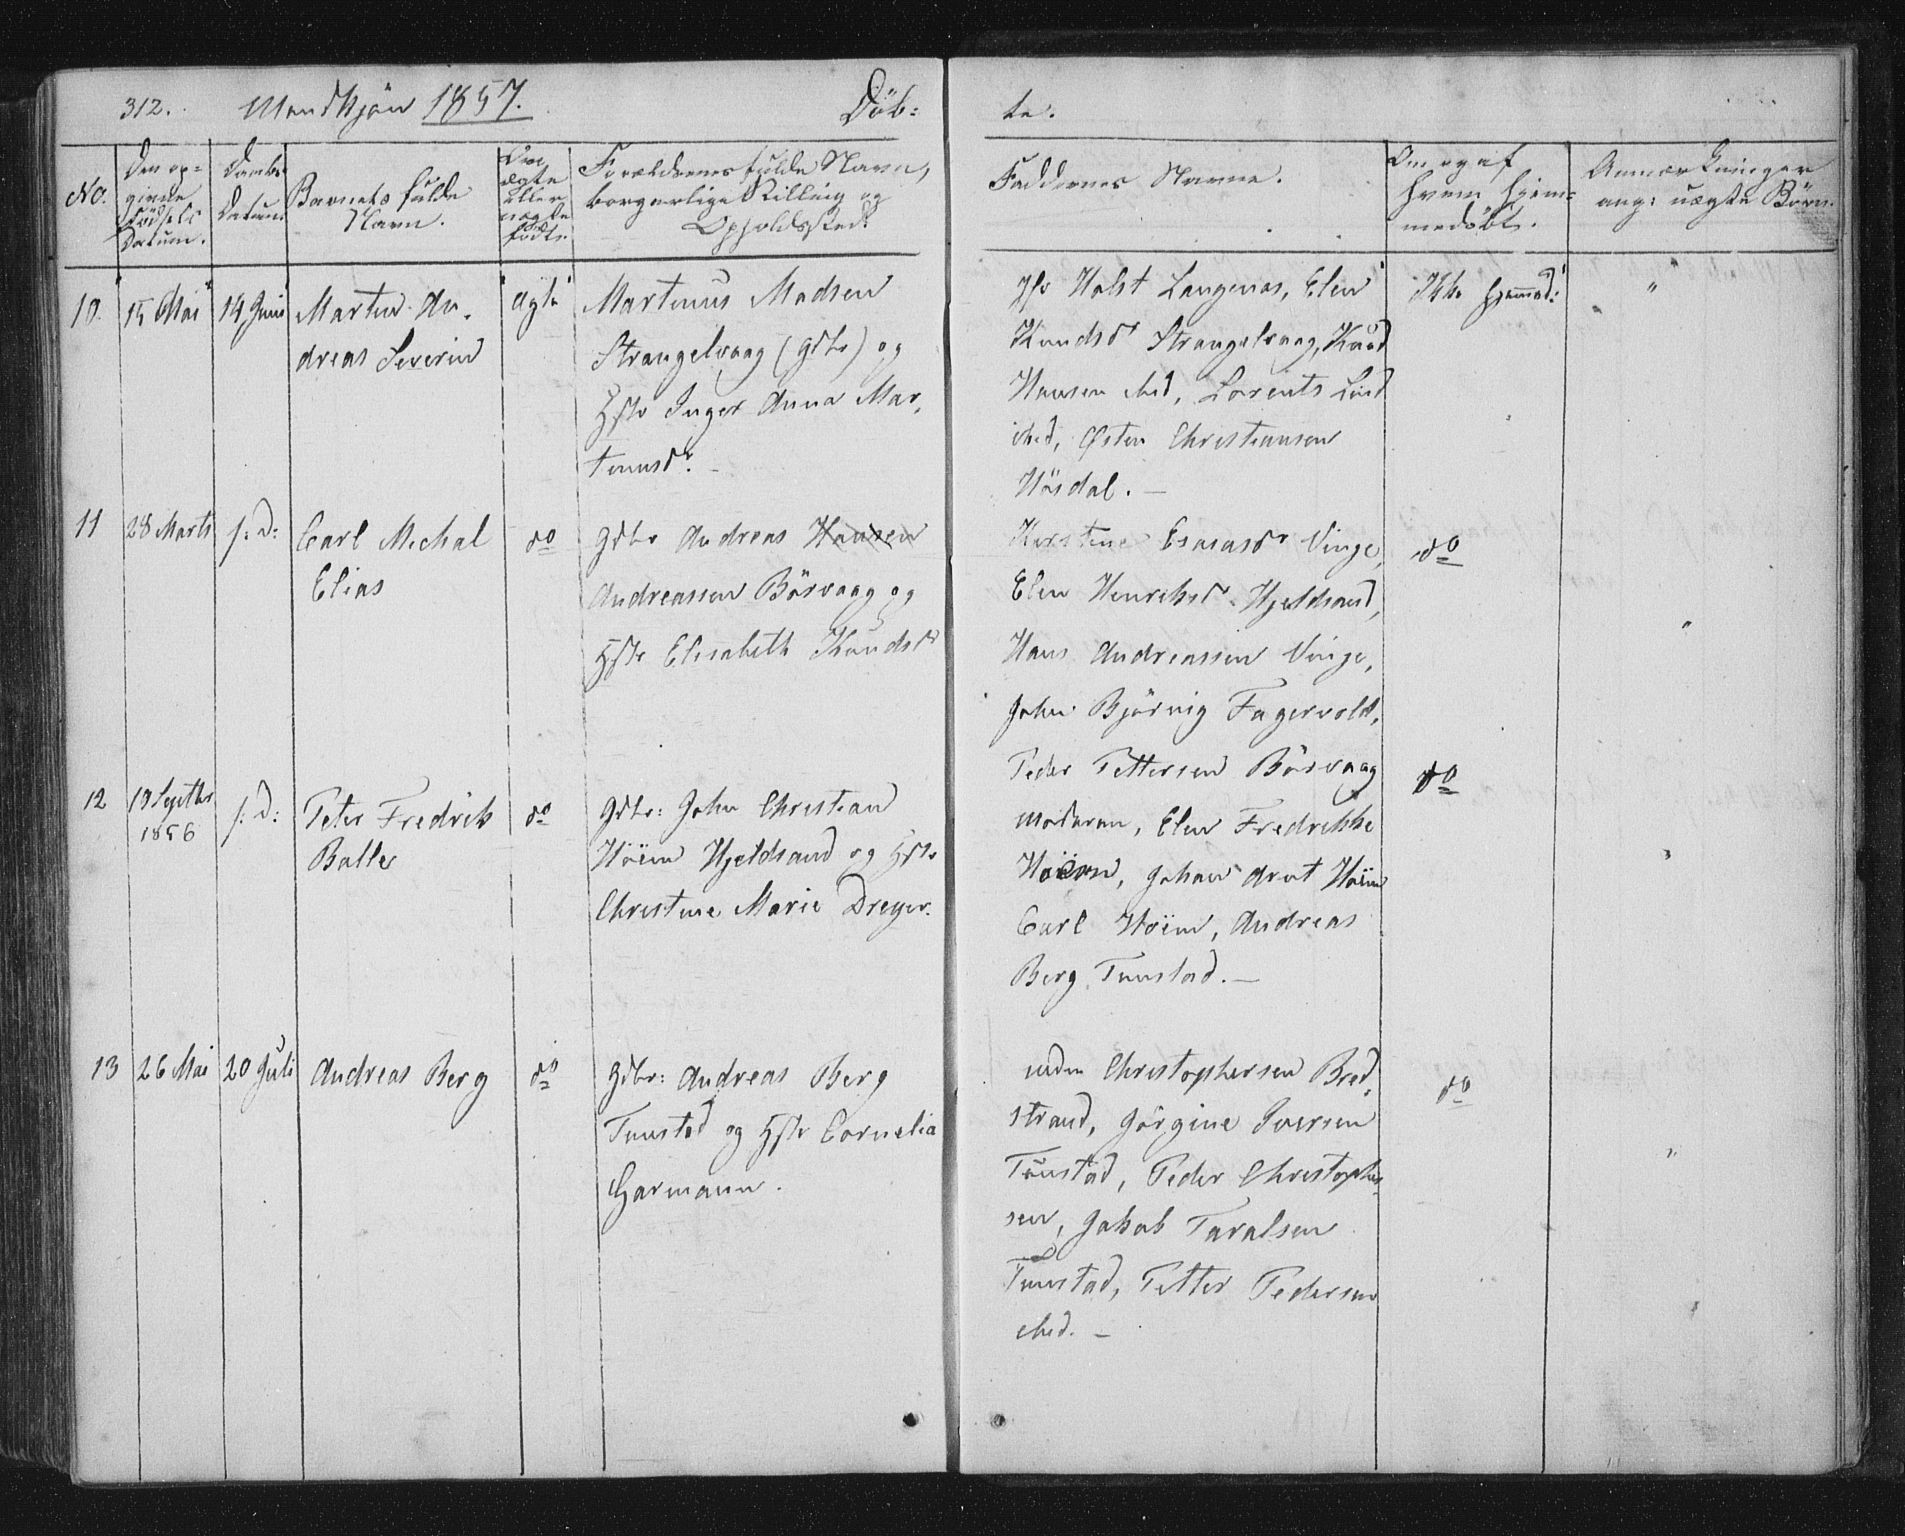 312. Mandkjön 1857. Döb-
te.
No.
Den op-
givne
Födsels
Datum.
Daabs
Datum
Barnets fulde
Navn.
Om
ægte
eller
uægte
födt.
Forældrenes fulde Navn,
borgerlige Stilling og
Opholdssted.
Faddernes Navne.
Om og af
hvem hjem-
medöbt.
Anmærkninger
ang: uægte Börn.
10. 15 Mai 14 Juni Martin An-
dreas Severin
ægte
Martinus Madsen
Strangelvaag (Gdbr) og
Hstr Inger Anna Mar-
tinusdr. -
Hr Holst Langenes, Elen
Knudsdr Strangelvaag, Knud
Hansen ibid, Lorents Lind
ibid, Østen Christiansen
Hösdal. -
Ikke hjemmed:
"
11 28 Marts s: D: Carl Michal
Elias
do
Gdbr Andreas Hansen
Andreassen Börvaag og
Hstr Elisabeth Knudsdr
Kirstine Esaiasdr Vinge,
Elen Henriksdr Hjeldsand,
Hans Andreassen Vinge,
John Bjørnig Fagervold,
Peder Pettersen Börvaag
do
"
12 19 Septbr
1856
s: D: Peter Fredrik
Balle
do
Gdbr: John Christian
Höim Hjeldsand og Hstr
Christine Marie Dreyer.
Moderen, Elen Fredrikke
Höiem, Johan Arnt Höim
Carl Höim, Andreas
Berg Tunstad. -
do
"
13 26 Mai 20 Juli Andreas Berg
do
Gdbr: Andreas Berg
Tunstad og Hstr Cornelia
Garmann.
Christophersen Bred-
strand, Jörgine Iversen
Tunstad, Peder Christopher-
sen, Jakob Taralsen
Tunstad, Petter Pedersen
ibid. -
do
"